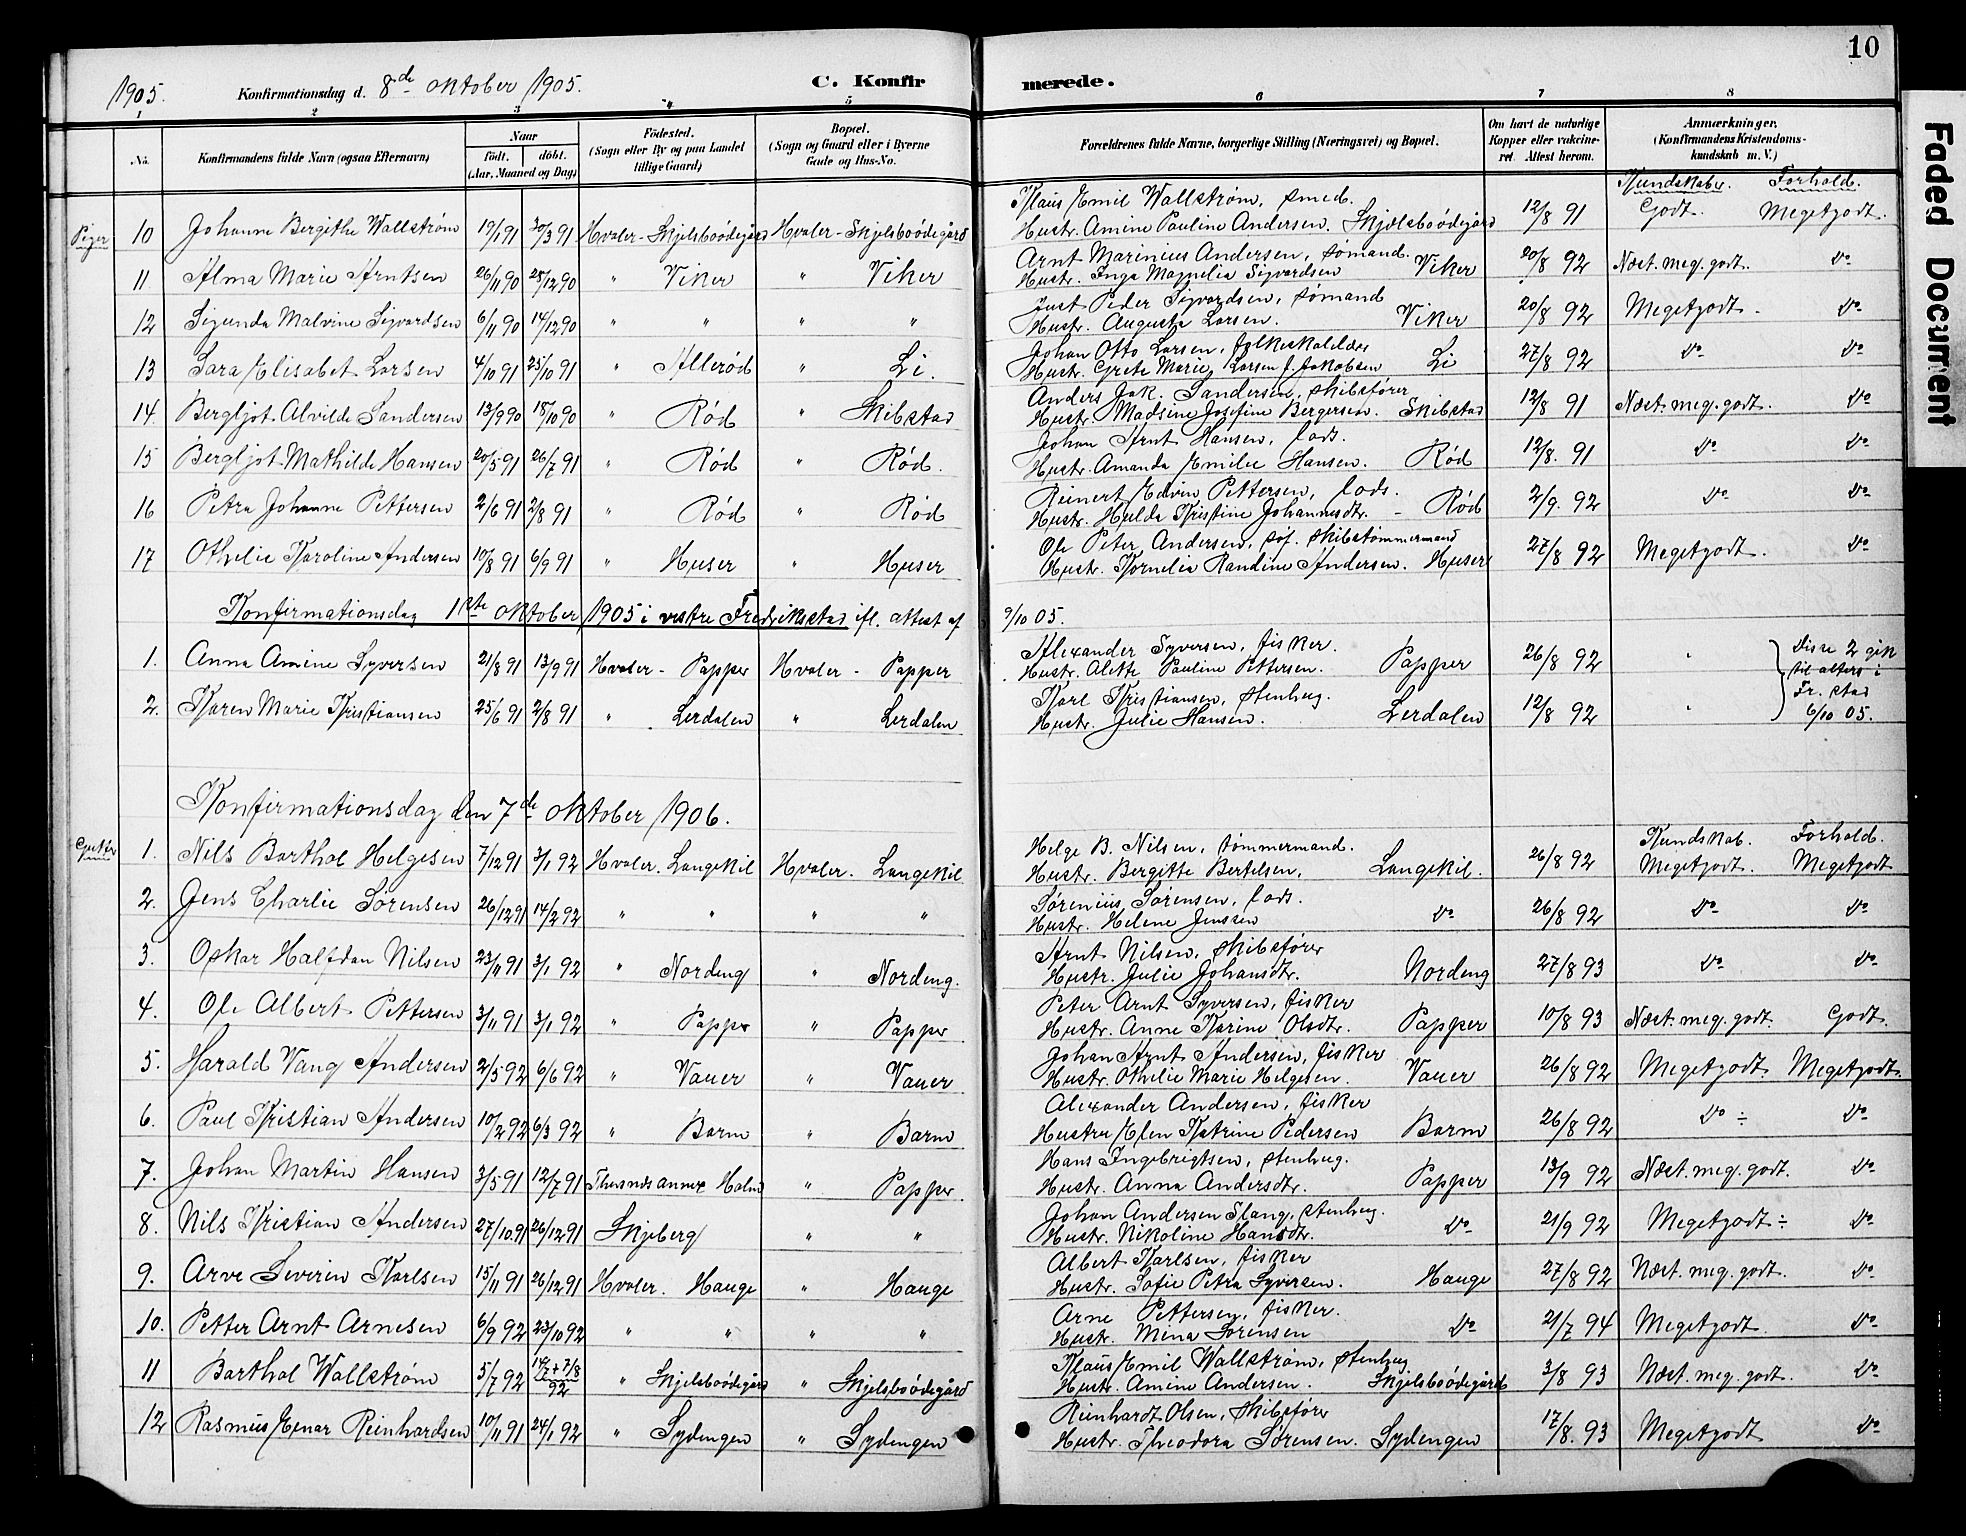 10
1905.
Konfirmationsdag d. 8de oktober 1905.
C. Konfirmerede.
1 2 3 4 5 6 7 8
No.
Konfirmandens fulde Navn (ogsaa Efternavn)
Naar
født. døbt.
(Aar, Maaned og Dag)
Fødested.
(Sogn eller By og paa Landet tillige Gaard)
Bopæl.
(Sogn og Gaard eller i Byerne Gade og Hus-No.
Forældrenes fulde Navne, borgerlige Stilling (Næringsvei) og Bopæl.
Om havt de naturlige Kopper eller vakcineret. Attest herom.
Anmærkninger,
(Konfirmandens Kristendomskundskab m. V.)
Kundskaber. Forhold.
Piger 10 Johanne Bergithe Wallstrøm 19/1 91 30/3 91 Hvaler - Skjelsboødegård Hvaler - Skjelsboødegård Klaus Emil Wallstrøm, smed. Hustr. Amine Pauline Andersen. Skjælsboødegård 12/8 91 Godt. Megetgodt.
11 Alma Marie Arntsen 26/11 90 25/12 90 " Viker " Viker Arnt Marinius Andersen, sømand. Hustr. Inga Magnelia Sigvardsen Viker 20/8 92 Næst. meg. godt. do
12 Sigunda Malvine Sigvardsen 6/11 90 14/12 90 " " " " Just Peder Sigvardsen, sømand Hustr. Augusta Larsen. Viker 20/8 92 Megetgodt. do
13 Sara Elisabet Larsen 4/10 91 25/10 91 " Allerød " Li. Johan Otto Larsen, Hustr. Grete Marie Larsen f. Jakobsen Li 27/8 92 do do
14. Bergljot Alvilde Sandersen 13/9 90 18/10 90 " Rød " Skibstad Anders Jak. Sandersen, skibsfører Hustr. Madsine Josefine Bergersen. Skibstad 12/8 91 Næst. meg. godt. do
15 Bergljot Mathilde Hansen 20/5 91 26/7 91 " Rød " Rød. Johan Arnt Hansen, lods. Hustr. Amanda Emilie Hansen. Rød 12/8. 91 do do
16 Petra Johanne Pettersen 2/6 91 2/8 91 " Rød " Rød Reinert Edvin Pettersen, lods. Hustr. Hulda Kristine Johannesdtr. - Rød 2/9. 92 do do
17 Othelie Karoline Andersen 10/8 91 6/9 91 " Huser " Huser Ole Peter Andersen, søf. skibstømmermand Hustr. Kornelia Randine Andersen. Huser 27/8 92 Megetgodt. do
Konfirmationsdag 1ste oktober 1905 i vestre Fredriksstad ifl. attest af 9/10 05.
1. Anna Amine Syversen 21/8 91 13/9 91 Hvaler - Papper Hvaler - Papper Alexander Syversen, fisker. Hustr. Alette Pauline Pettersen. Papper 26/8 92 "
2. Karen Marie Kristiansen 25/6 91 2/8 91 " Lerdalen " Lerdalen Karl Kristiansen, stenhug. Hustr. Julie Hansen. Lerdalen 12/8 92 "
Disse 2 gik til alters i Fr. stad 6/10 05.
Konfirmationsdag den 7de oktober 1906.
Kundskab. Forhold.
Gutter 1. Nils Barthol Helgesen 7/12 91 3/1 92 Hvaler. Langekil Hvaler. Langekil Helge B. Nilsen, tømmermand. Hustr. Bergitte Bertelsen, Langekil. 26/8 92 Megetgodt. Megetgodt
2. Jens Charlie Sørensen 26/12 91 14/2 92 " " " " Sørenius Sørensen, lods. Hustr. Helene Jenssen do 26/8 92 do do
3. Oskar Halfdan Nilsen 23/11 91 3/1 92 " Nordeng " Nordeng. Arnt Nilsen, skibsfører Hustr. Julie Johansdtr. Nordeng 27/8 93 do do
4. Ole Albert Pettersen 3/11 91 3/1 92 " Papper " Papper Peter Arnt Syversen, fisker Hustr. Anne Karine Olsdtr. Papper 10/8 93 Næst. meg. godt. Godt.
5. Harald Vang Andersen 2/5 92 6/6 92 " Vauer " Vauer Johan Arnt Andersen, fisker Hustr. Othelie Marie Helgesen. Vauer 26/8 92 Megetgodt. Megetgodt.
6. Paul Kristian Andersen 10/2 92 6/3 92 " Barm " Barm Alexander Andersen, fisker Hustru Elen Katrine Pedersen Barm 26/8 92 do ÷ do
7. Johan Martin Hansen 3/5 91 12/7 91 Thrsnds annex Holm " Papper. Hans Ingebrigtsen, stenhug. Hustr. Anna Andersdtr. Papper 13/9 92 Næst. meg. godt. do
8. Nils Kristian Andersen 27/10 91 26/12 91 Skjeberg " " Johan Andersen Slang, stenhug. Hustr. Nikoline Hansdtr. do 21/9 92 Megetgodt ÷ do
9. Arve Severin Karlsen 15/11 91 26/12 91 Hvaler. Hauge " Hauge Albert Karlsen, fisker Hustr. Sofie Petra Syversen. Hauge 27/8 92 Næst. meg. godt. do
10. Petter Arnt Arnesen 6/9 92 23/10 92 " " " " Arne Pettersen, fisker. Hustr. Mena Sørensen do 21/7 94 Megetgodt. do
11 Barthol Wallstrøm 5/7 92 14/7 + 7/8 92 " Skjelsboødegård " Skjelsboødegård Klaus Emil Wallstrøm, stenhug Hustr. Amine Andersen. Skjelsboødegård 3/8 93 Næst. meg. godt. do
12 Rasmus Einar Reinhardsen 10/11 91 24/1 92 " Sydengen " Sydengen Reinhardt Olsen, skibsfører Hustr. Theodora Sørensen. Sydengen 17/8. 93 Megetgodt do
Faded Document